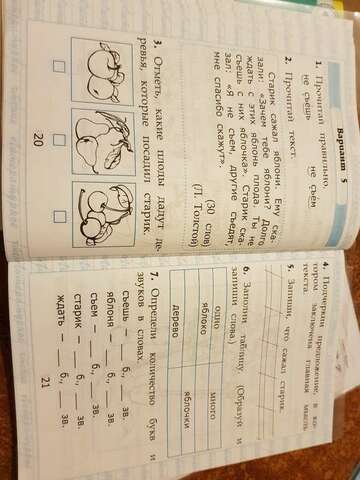 Вариант 5
1. Прочитай правильно.
не съешь не съем
2. Прочитай текст.
Старик сажал яблони. Ему ска-
зали: «Зачем тебе яблони? Долго
ждать с этих яблонь плода. Ты не
съешь с них яблочка». Старик ска-
зал: «Я не съем, другие съедят,
мне спасибо скажут».
(30 слов)
(Л. Толстой)
3. Отметь, какие плоды дадут де-
ревья, которые посадил старик.
20
4. Подчеркни предложение, в ко-
тором заключена главная мысль
текста.
5. Запиши, что сажал старик.
6. Заполни таблицу. (Образуй и
запиши слова.)
одно много
яблоко
яблочки
дерево
7. Определи количество букв и
звуков в словах.
съешь — б., зв.
яблоня — б., зв.
съем — б., зв.
старик — б., зв.
ждать — б., зв.
21